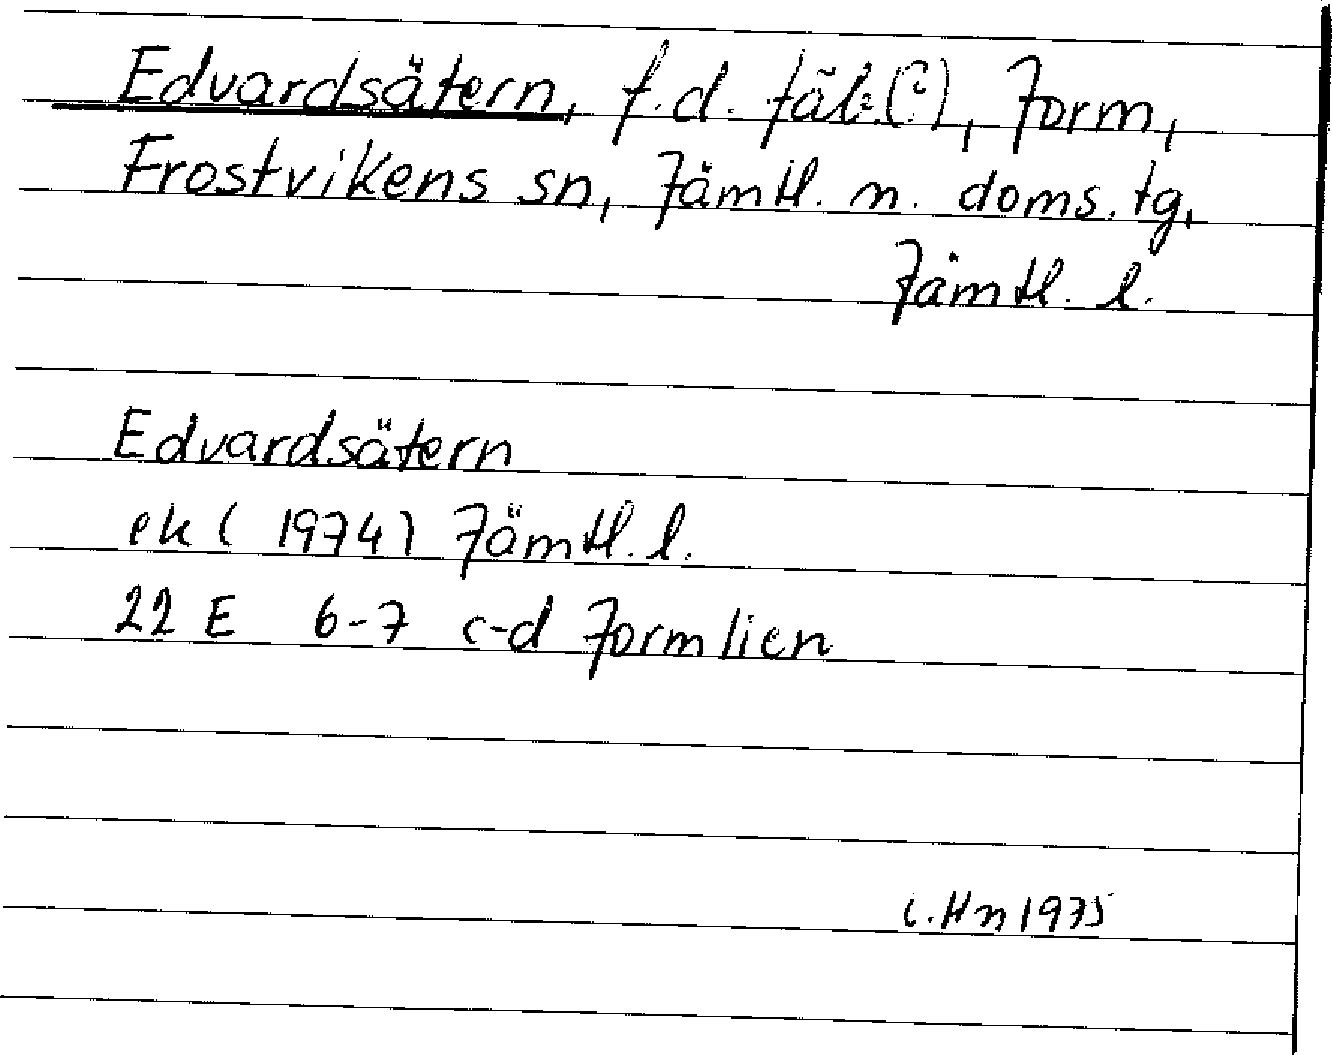 Edvardsätern, f.d. fäb.(?), Jorm,
Frostvikens sn, Jämtl. n. doms. tg,
Jämtl. l.
Edvardsätern
ek (1974) Jämtl. l.
22 E 6-7 c-d Jormlien
C.Hn 1975